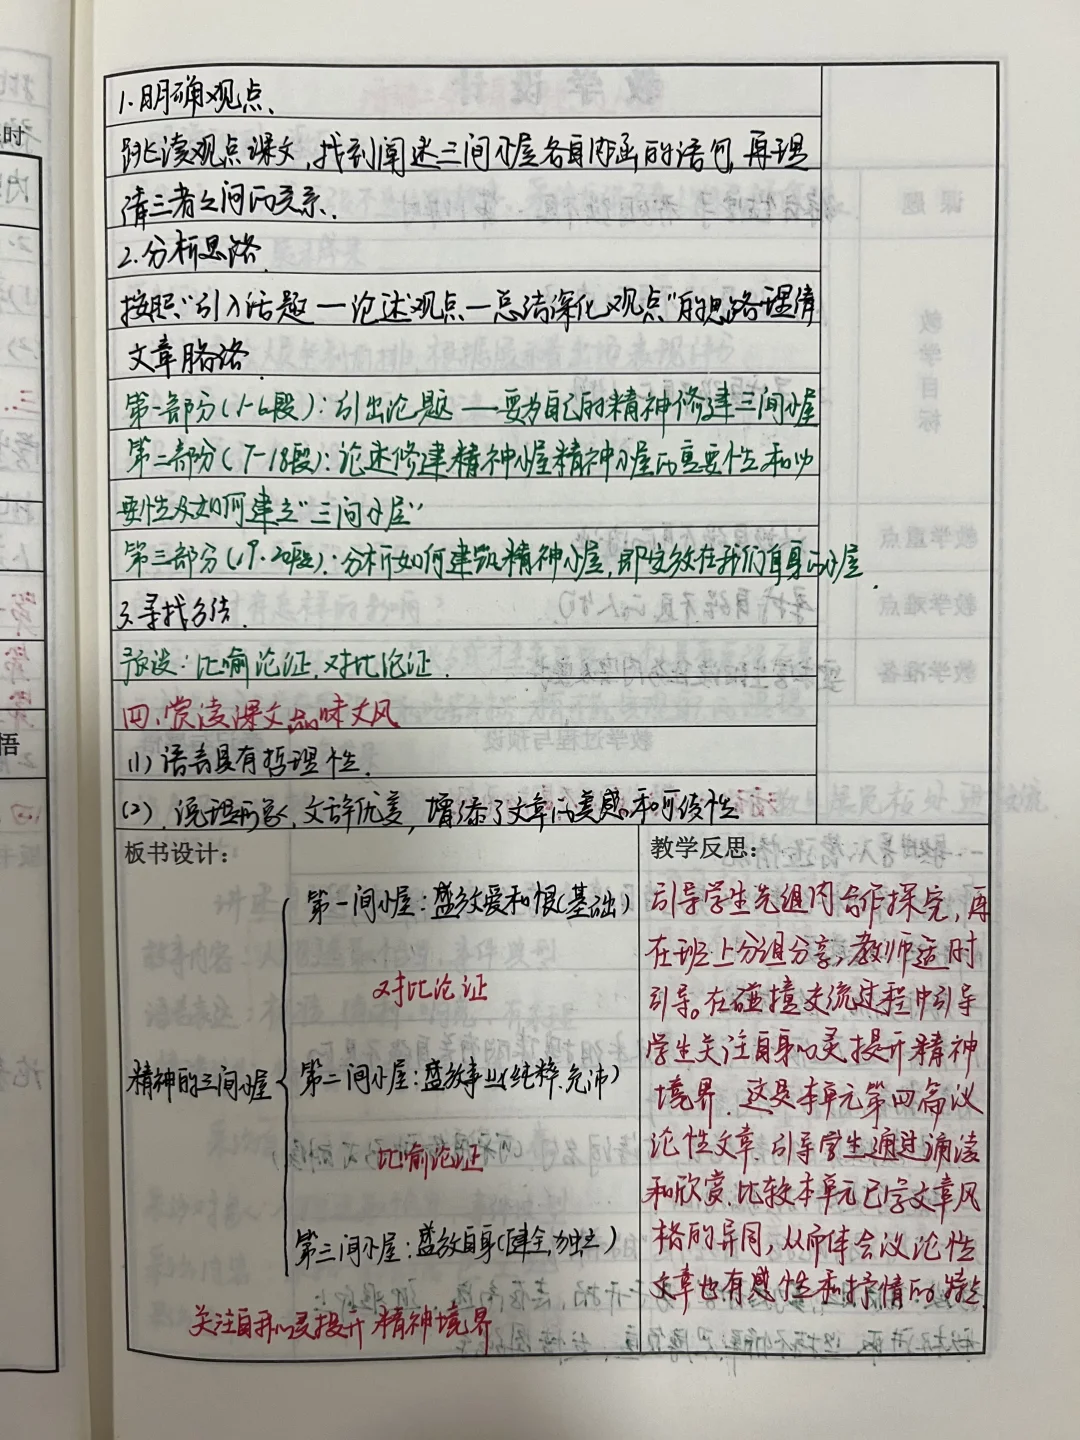 1.明确观点、
跳读观点课文,找到阐述三间小屋各自内涵的语句,再理
清三者之间的关系.
2.分析思路.
按照“引入话题—论述观点—总结深化观点”的思路理清
文章脉络.
第一部分(1-6段):引出论题——要为自己的精神修建三间小屋
第二部分(7-18段):论述修建精神小屋精神小屋的重要性和必
要性及如何建立“三间小屋”
第三部分(19-20段):分析如何建筑精神小屋,即安放在我们自身的小屋.
3.寻找方法.
预设:比喻论证,对比论证.
四、赏读课文品味文风
(1)语言具有哲理性.
(2).说理形象,文辞优美,增添了文章的美感和可读性
板书设计:
第一间小屋:盛放爱和恨(基础)
对比论证
精神的三间小屋
第二间小屋:盛放事业(纯粹、充沛)
比喻论证
第三间小屋:盛放自身(健全,独立)
关注自我心灵提升精神境界
教学反思:
引导学生先组内合作探究,再
在班上分组分享,教师适时
引导。在碰撞交流过程中引导
学生关注自身心灵提升精神
境界.这是本单元第四篇议
论性文章,引导学生通过诵读
和欣赏,比较本单元已学文章风
格的异同,从而体会议论性
文章也有感性和抒情的特点.
课题
教学目标
教学重点
教学难点
教学准备
时
悟